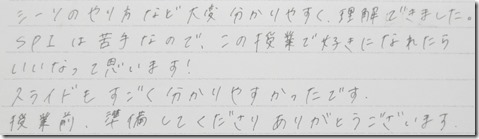 シーソのやり方など大変分かりやすく、理解できました。
SPIは苦手なので、この授業で好きになれたら
いいなって思います!
スライドもすごく分かりやすかったです。
授業前、準備してくださりありがとうございます。